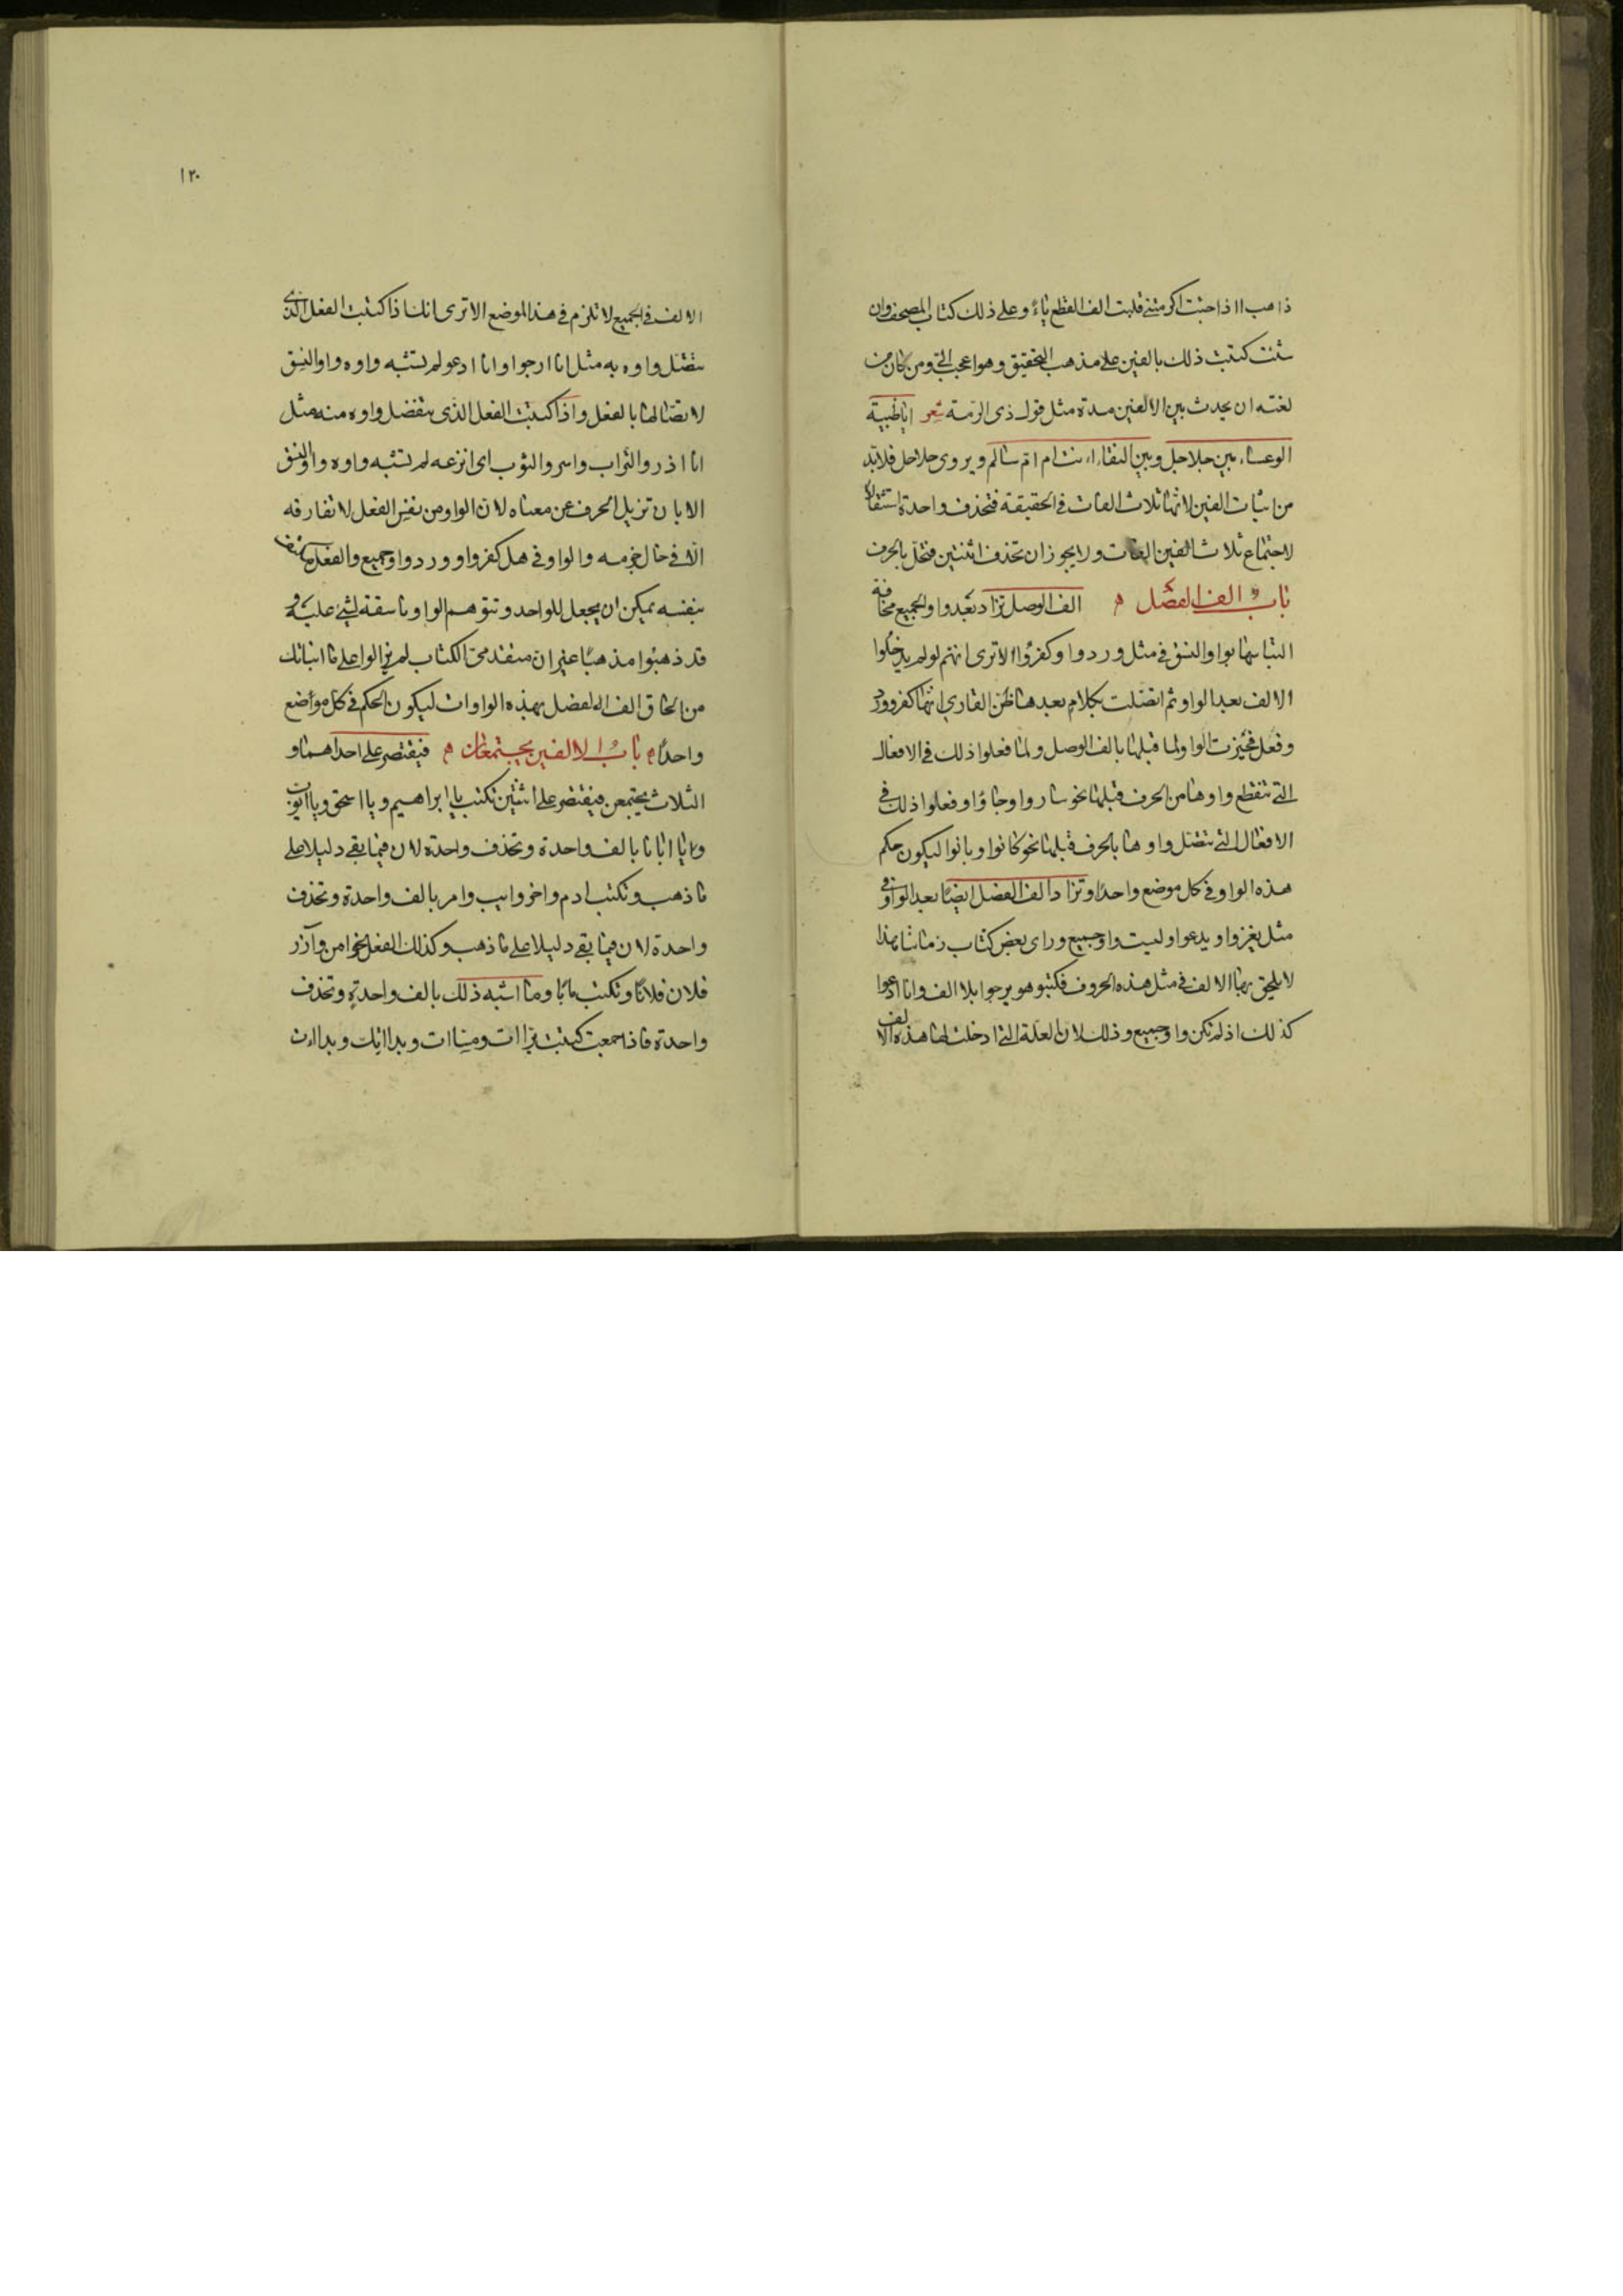 ذاهب ااذا جئت اكرمتنى قلبت الف القطع ياءً وعلى ذلك كتاب المصحف وان
شئت كتبت ذلك بالفين على مذهب التحقيق وهو اعجب الىّ ومن كان من
لغته ان يحدث بين الالفين مدة مثل قول ذى الرمة شعر اياظبية
الوعساء بين جلاجل وبين النقاء اءنت ام امّ سالم ويروى حلاحل فلابد
من اثبات الفين لانها ثلاث الفات فى الحقيقة فتحذف واحدة استثقالا
لاجتماع ثلاث الفين الفات ولا يجوز ان تحذف اثنتين فتخلّ بالحرف
باب الف الفصل ه الف الوصل تزاد بعد واو الجميع مخافة
التباسها بواو النسق فى مثل وردوا وكفروا الا ترى انهم لو لم يدخلوا
الالف بعد الواو ثم اتصلت بكلام بعدها ظن القارى انها كفر وورد
وفعل فحيزت الواو لما قبلها بالف الوصل ولما فعلوا ذلك فى الافعال
التى تنقطع واوها من الحرف قبلها نحو ساروا وجاؤا وفعلوا ذلك فى
الافعال التى تتصل واوها بالحرف قبلها نحو كانوا وبانوا ليكون حكم
هذه الواو فى كل موضع واحدا وتزاد الف الفصل ايضًا بعد الواو فى
مثل يغزوا ويدعوا وليست واو جميع وراى بعض كتاب زماننا هذا
لا يلحق بها الالف فى مثل هذه الحروف فكتبوا هو يرجوا بلا الف وانا ادعوا
كذلك اذ لم تكن واو جميع وذلك لان العلة التى ادخلت لها هذه الالف
١٢٠
الالف فى الجميع لا تلزم فى هذا الموضع الا ترى انك اذا كتبت الفعل الذى
تتصل واوه به مثل انا ارجوا وانا ادعو لم تشبه واوه واو النسق
لاتصالها بالفعل واذا كتبت الفعل الذى تنفصل واوه منه مثل
انا اذرو التراب واسرو الثوب اى انزعه لم تشبه واوه واو النسق
الا بان تزيل الحرف عن معناه لان الواو من نفس الفعل لا تفارقه
الا فى حال جزمه والواو فى هل كفروا ووردوا واو جميع والفعل مكتف
بنفسه يمكن ان يجعل للواحد وتتوهم الواو ناسقة لشئ عليه و
قد ذهبوا مذهبًا غير ان متقدمى الكتاب لم يزالوا على ما انباتك
من الحاق الف الفصل بهذه الواوات ليكون الحكم فى كل مواضع
واحدًا ه باب الالفين يجتمعان ه فيقتصر على احداهما و
الثلاث يجتمعن فيقتصر على اثنتين تكتب ياابراهيم ويااسحق وياايوب
وياابانا بالف واحدة وتحذف واحدة لان فيما بقى دليلا على
ما ذهب وتكتب ادم واخر وايب وامر بالف واحدة وتحذف
واحدة لان فيما بقى دليلا على ما ذهب وكذلك الفعل نحو امن وآزر
فلان فلانًا وتكتب مابًا وما اشبه ذلك بالف واحدة وتحذف
واحدة فاذا جمعت كتبت براات ومساات وبدااتك وبدااات